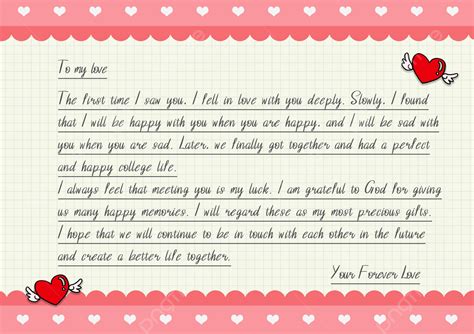 To my love
The first time I saw you, I fell in love with you deeply. Slowly, I found
that I will be happy with you when you are happy, and I will be sad with
you when you are sad. Later, we finally got together and had a perfect
and happy college life.
I always feel that meeting you is my luck. I am grateful to God for giving
us many happy memories. I will regard these as my most precious gifts.
I hope that we will continue to be in touch with each other in the future
and create a better life together.
Your Forever Love